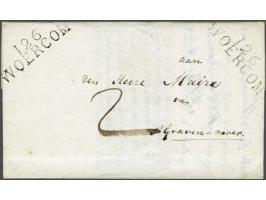 126
WOERCOM
126
WOERCOM
aan
den Heere Maire
van
2
'sGraven-moer.